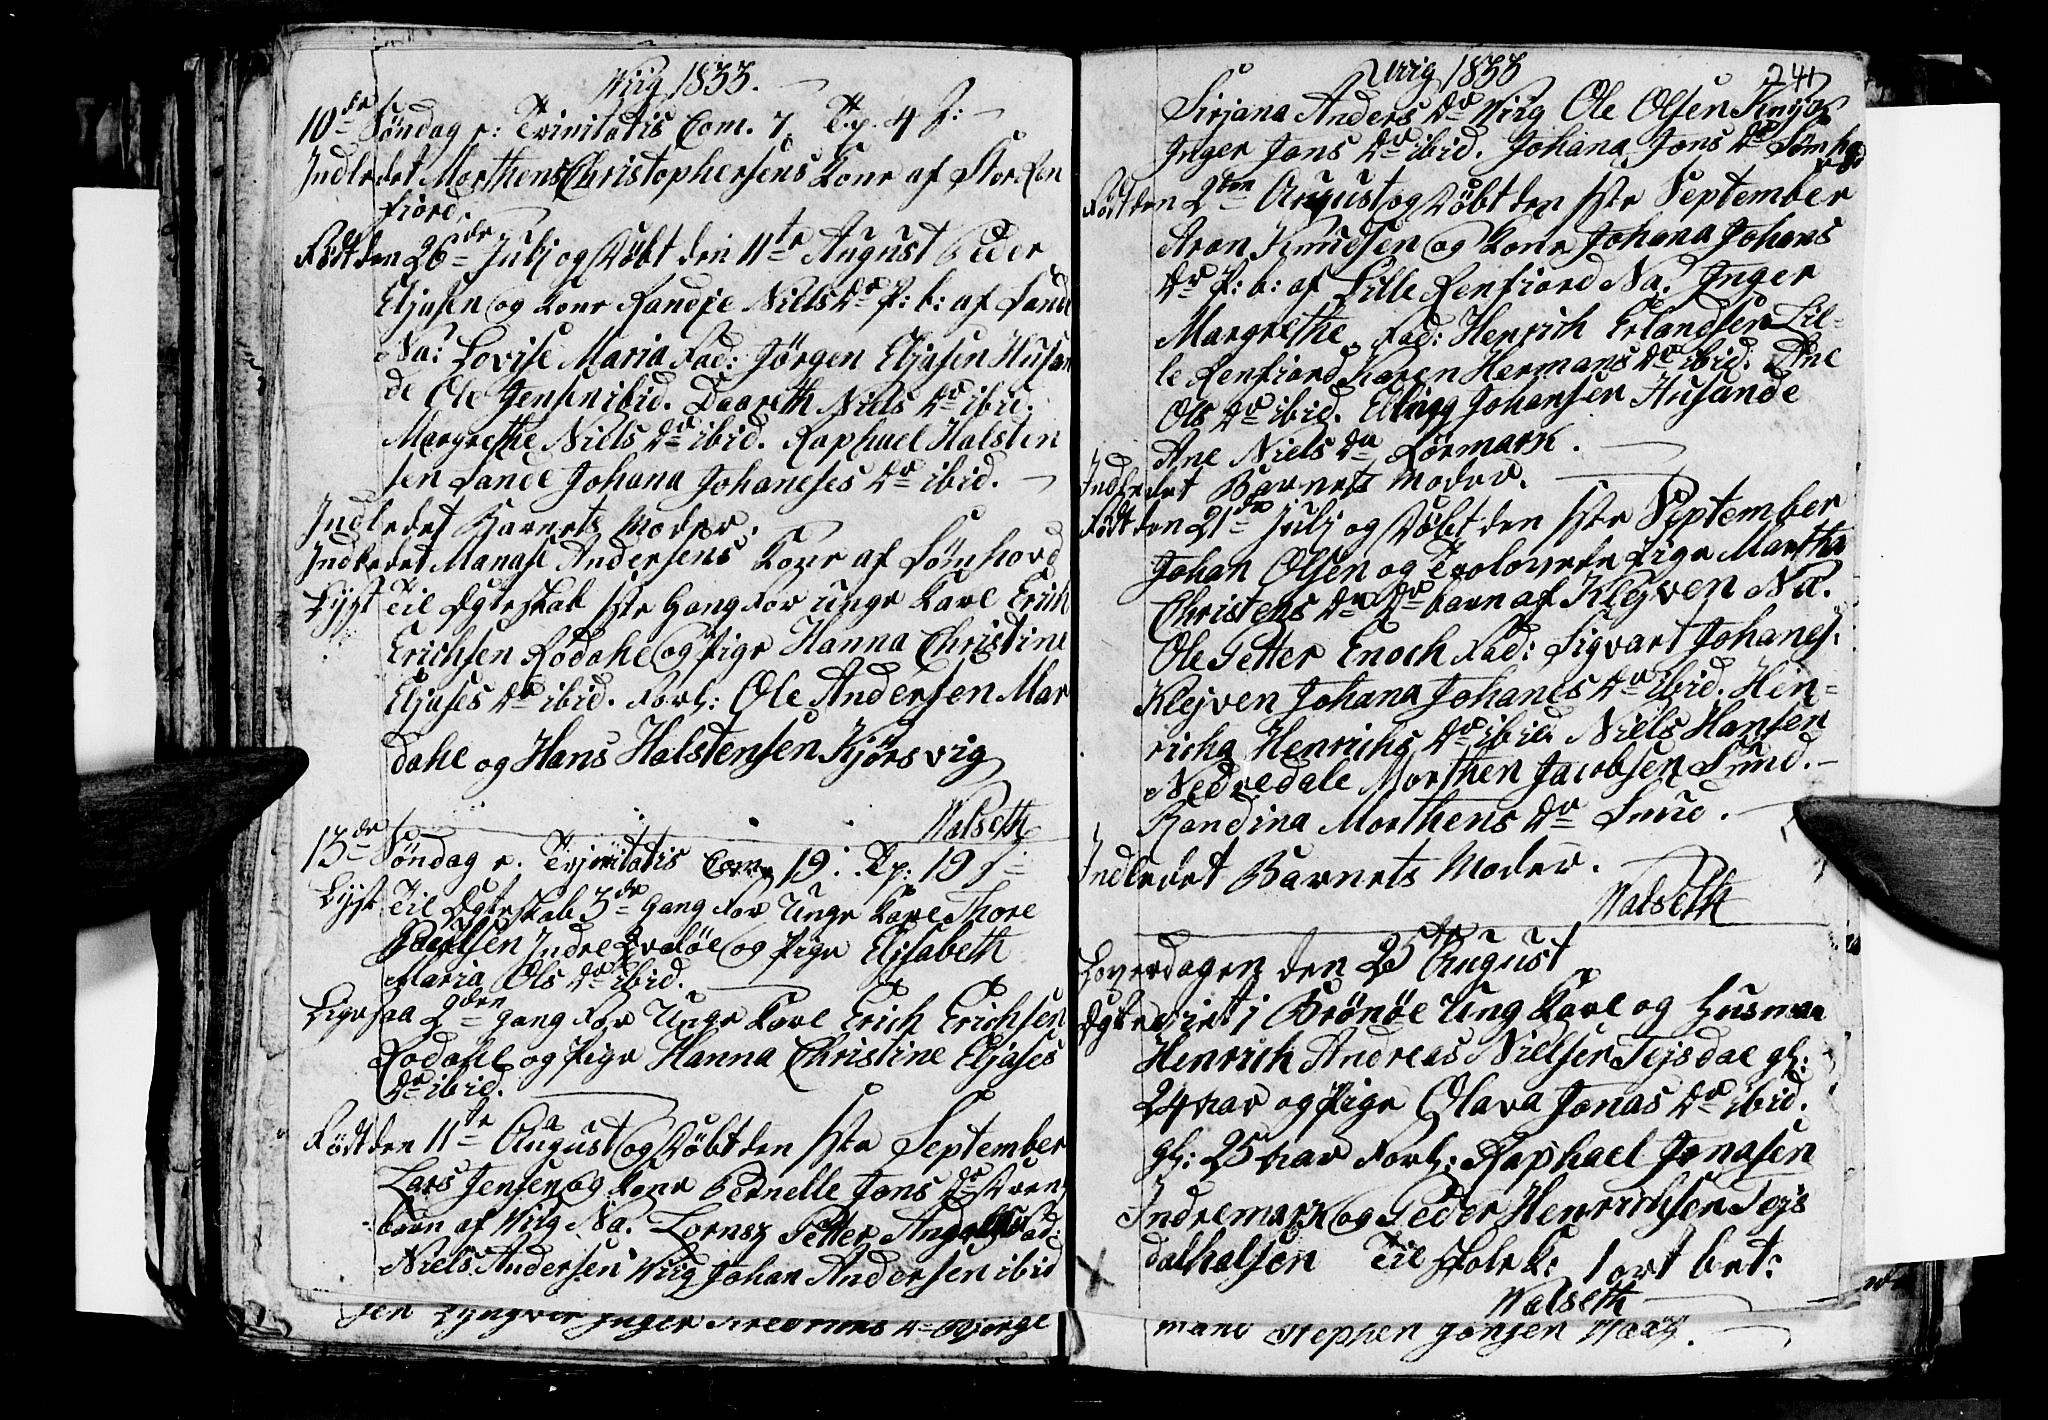 Wiig 1833.
10de Søndag e: Trinitatis Com. 7, Tp. 4 f:
Indledet Morthens Christophersens Kone af Stor Ren
fiord.
Født den 26de Julj og Døbt den 11te August Peder
Eljasen og Kone Randje Niels Dr P: b: af Sande
Na: Lovise Maria Fad: Jørgen Eljasen Husan
de Ole Jensen ibid. Daareth Niels Dr ibid.
Margrethe Niels Dr ibid. Raphael Halsten
sen Sande Johana Johaneses Dr ibid.
Indledet Barnets Moder.
Indledet Manase Andersens Kone af Sømhovd
Lyst Til Ægteskab 1ste Gang For unge Karl Erich
Erichsen Rødahl og Pige Hanna Christine
Eljases Dr ibid. Forl: Ole Andersen Mar
dahl og Hans Halstensen Kjørsvig
Walseth
13de Søndag e. Trinitatis Com 19. Tp: 19 f
Lyst Til Ægteskab 3de Gang For Unge Karl Thore
Indre og Pige Elisabeth
Maria Ols Dr ibid.
Ligesaa 2den gang For Unge Karl Erich Erichsen
Rodahl og Pige Hanna Christine Eljases
Dr ibid.
Født den 11te August og Døbt den 1ste September
Lars Jensen og Kone Pernelle Jons Dr Dren
barn af Wiig Na. Lornsz Petter Fad:
Niels Andersen Wiig Johan Andersen ibid
sen Lyngver Inger Dr Bjerge
Wiig 1833
241
Sirjana Anders Dr Wiig Ole Olsen
Inger Jons Dr ibid. Johana Jons Dr Sømho
vd
Født den 2den August og Døbt den 1ste September
Aron Knudsen og Kone Johana Johans
Dr P: b: af Lille Renfiord Na. Inger
Margrethe. Fad: Henrich Erlandsen Lil-
le Renfiord Karen Hermans Dr ibid: Ane
Ols Dr ibid. Elling Johansen Husande
Ane Niels Dr Rørmark.
Indledet Barnets Moder.
Født den 21de Julj og Døbt den 1ste September
Johan Olsen og Trolovede Pige Martha
Christens Dr Dr barn af Klejven Na.
Ole Petter Enoch Fad: Sigvart Johanes:
Klejven Johana Johanes Dr ibid. Hen-
richa Henrichs Dr ibid Niels Hansen
Nedredale Morthen Jacobsen Sund.
Randina Morthens Dr Sund.
Indledet Barnets Moder.
Walseth
Løverdagen den 25te August
Ægteviet i Brönöe Ung Karl og Husman
Henrich Andreas Nielsen Tejsdal gl:
24 aar og Pige Olava Jonas Dr ibid.
gl: 25 aar Forl: Raphael Jonasen
Indremark og Peder Henrichsen Tejs
dalhalsen Til Skolek: 1 ort bet:
Walseth
mand Stephen Jonsen